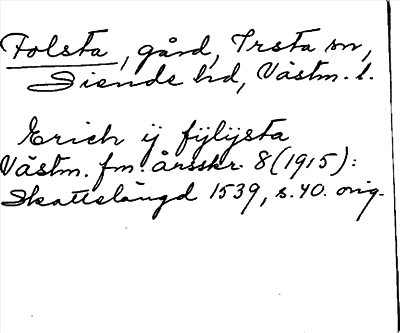 Folsta, gård, Irsta sn,
Siende hd, Västm. l.
Erich ij fijlijsta
Västm. fm:s årsskr. 8 (1915):
Skattelängd 1539, s. 40. orig.